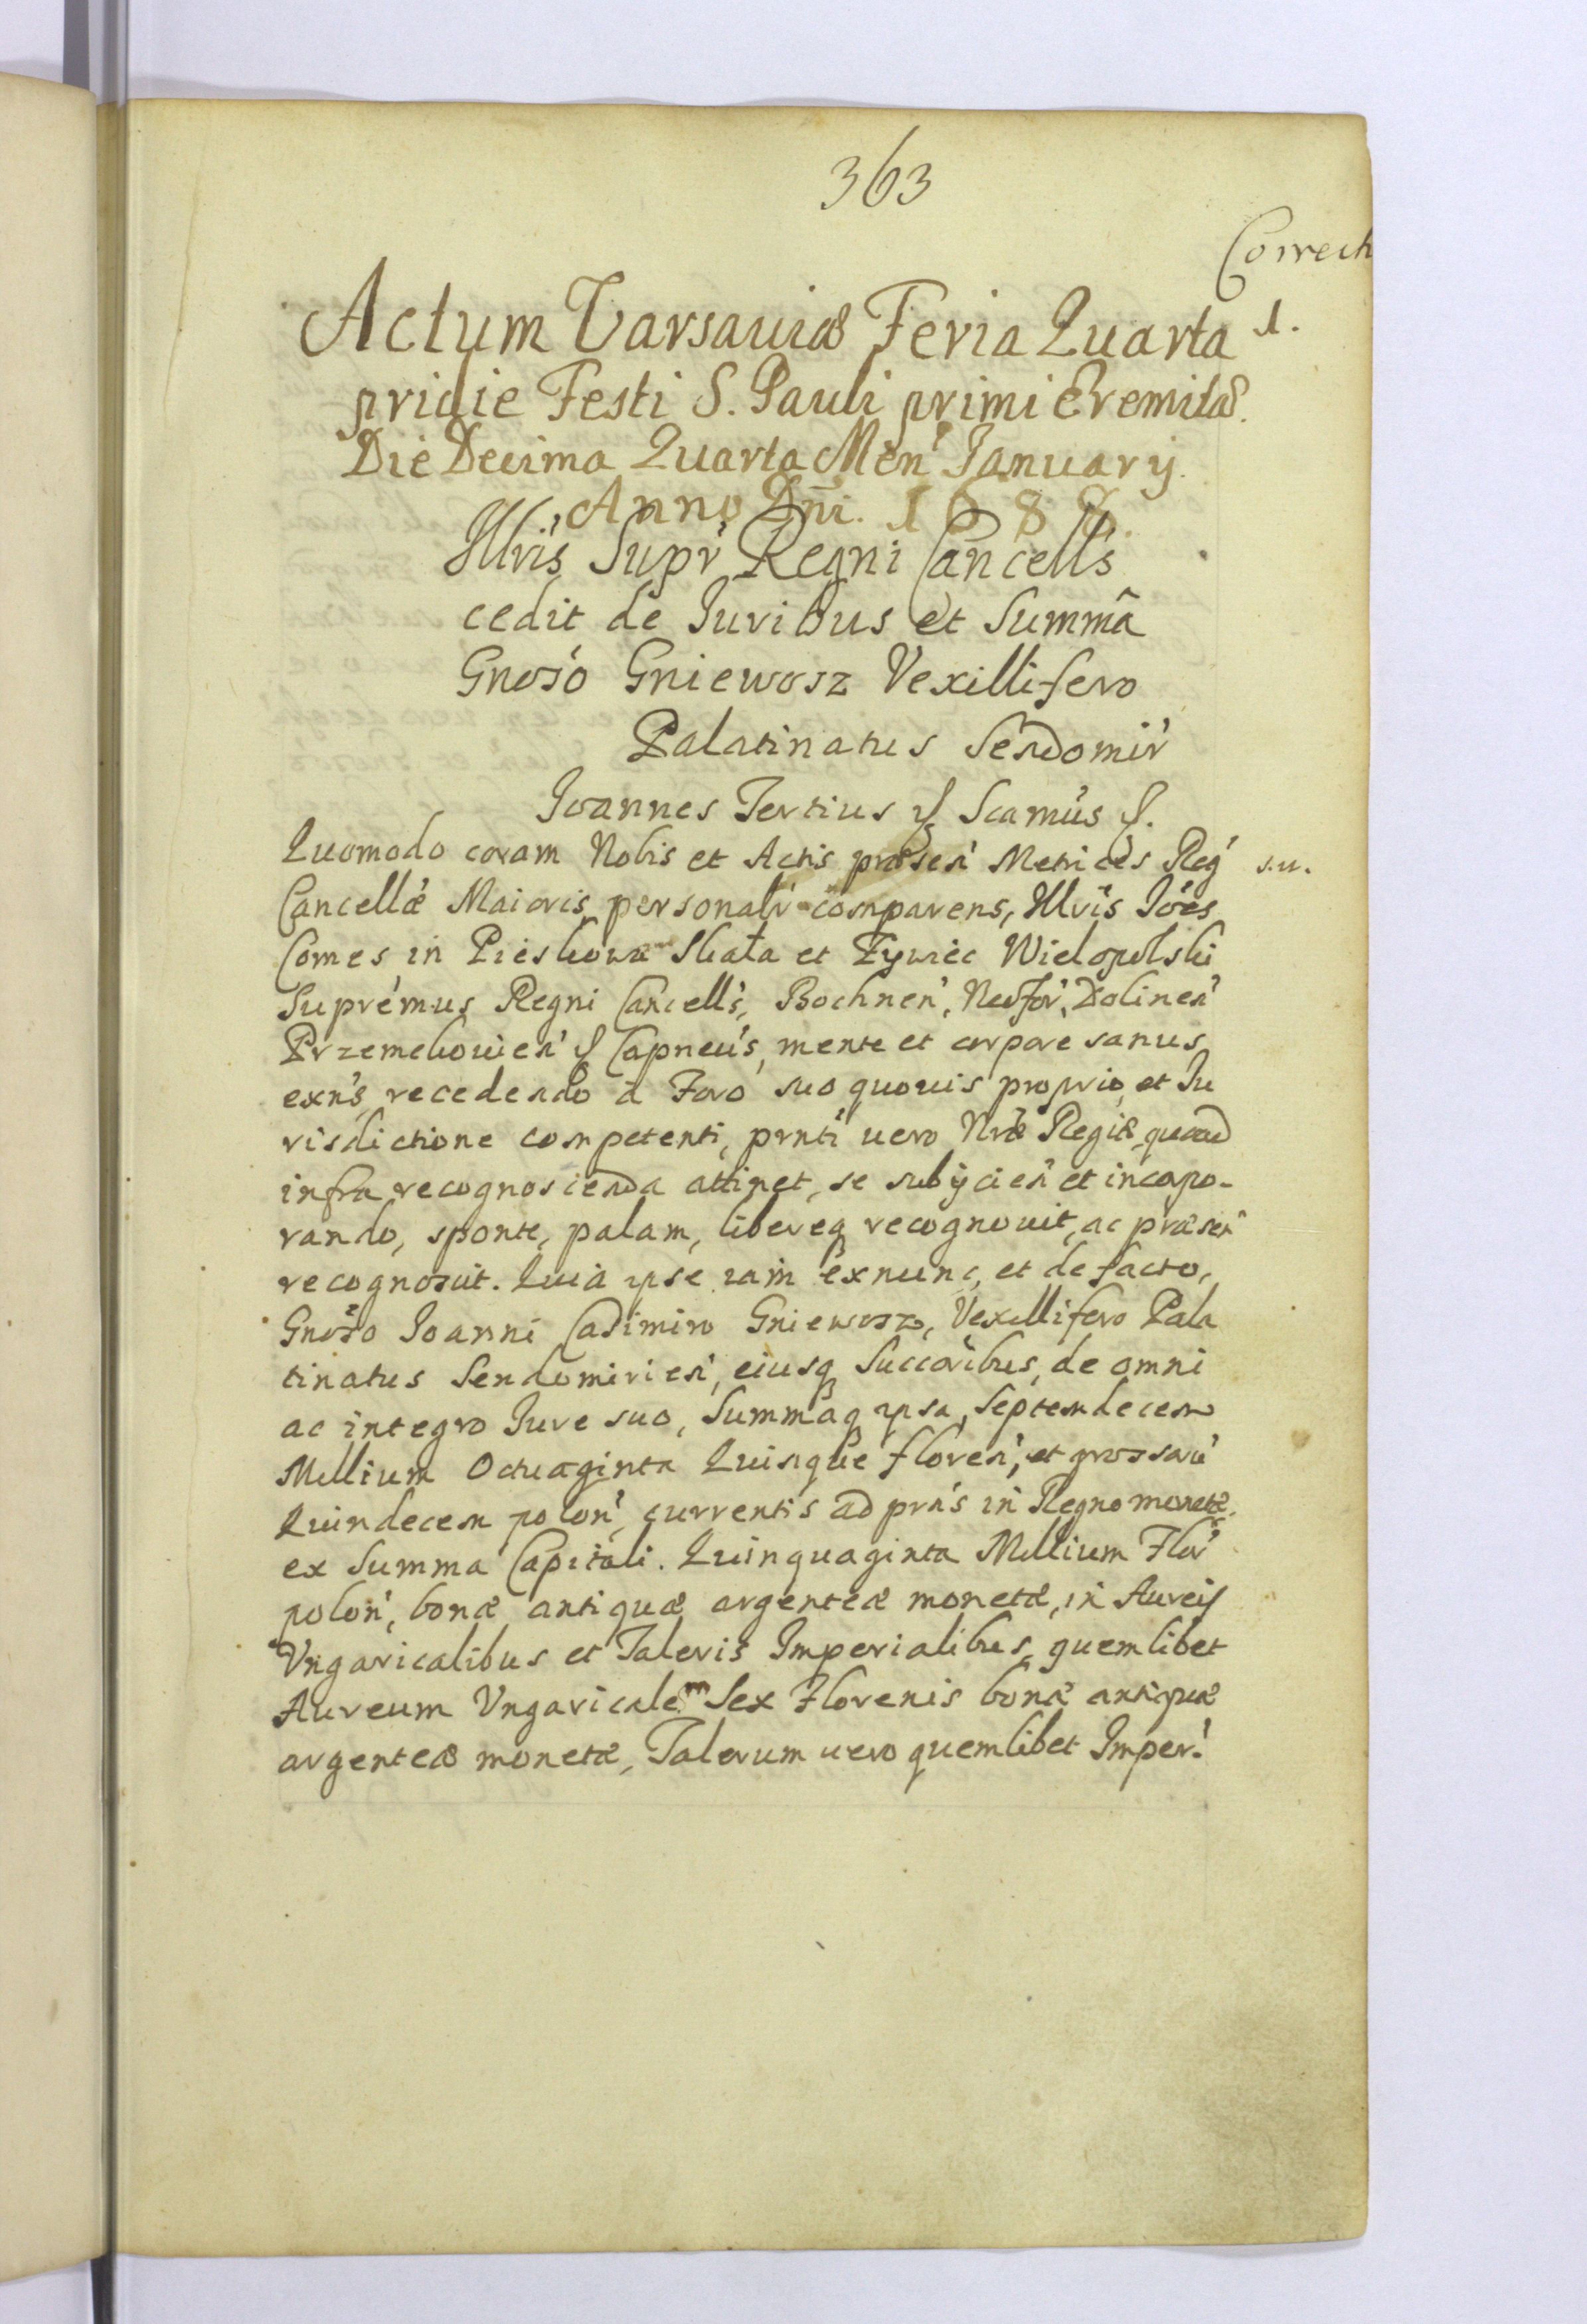 363
Correct
Actum Varsaviæ Feria Quarta 1.
pridie Festi S. Pauli primi Eremitæ.
Die Decima Quarta Men' January.
Anno Dn̄i. 1688.
Illris Supr' Regni Cancell's
cedit de Iuribus et Summâ
Gnoso Gniewosz Vexillifero
Palatinatus Sendomir'
Ioannes Tertius Scamus
Quomodo coram Nobis et Actis præsen' Metrices Reg' s.u.
Cancellæ Maioris personalr' comparens, Illris Ioes
Comes in Pieskowa Skała et Zywiec Wielopolski
Supremus Regni Cancell's, Bochnen', Dolinen'
Capneus, mente et corpore sanus
exn's recedendo à Foro suo quouis proprio, et Iu
risdictione competenti, prnti uero Nræ Regiæ quoad
infra recognoscenda attinet, se subijcien' et incorpo-
rando, sponte, palam, libereq recognouit, ac præsen'
recognoscit. Quia ipse iam exnunc, et defacto,
Gnoso Ioanni Casimiro Gniewosz, Vexillifero Pala
tinatus Sendomirien', eiusq Succoribus, de omni
ac integro Iure suo, Summaq ipsa, Septemdecem
Millium Octuaginta Quinque floren', et grossoru'
Quindecem polon', currentis ad prn's in Regno monetæ.
ex Summa Capitali. Quinquaginta Millium Flor'
polon', bonæ antiquæ argenteæ monetæ, in Aureis
Vngaricalibus et Taleris Imperialibus, quemlibet
Aureum Vngaricalem Sex Florenis bonæ antiquæ
argenteæ monetæ, Talerum uero quemlibet Imper.'